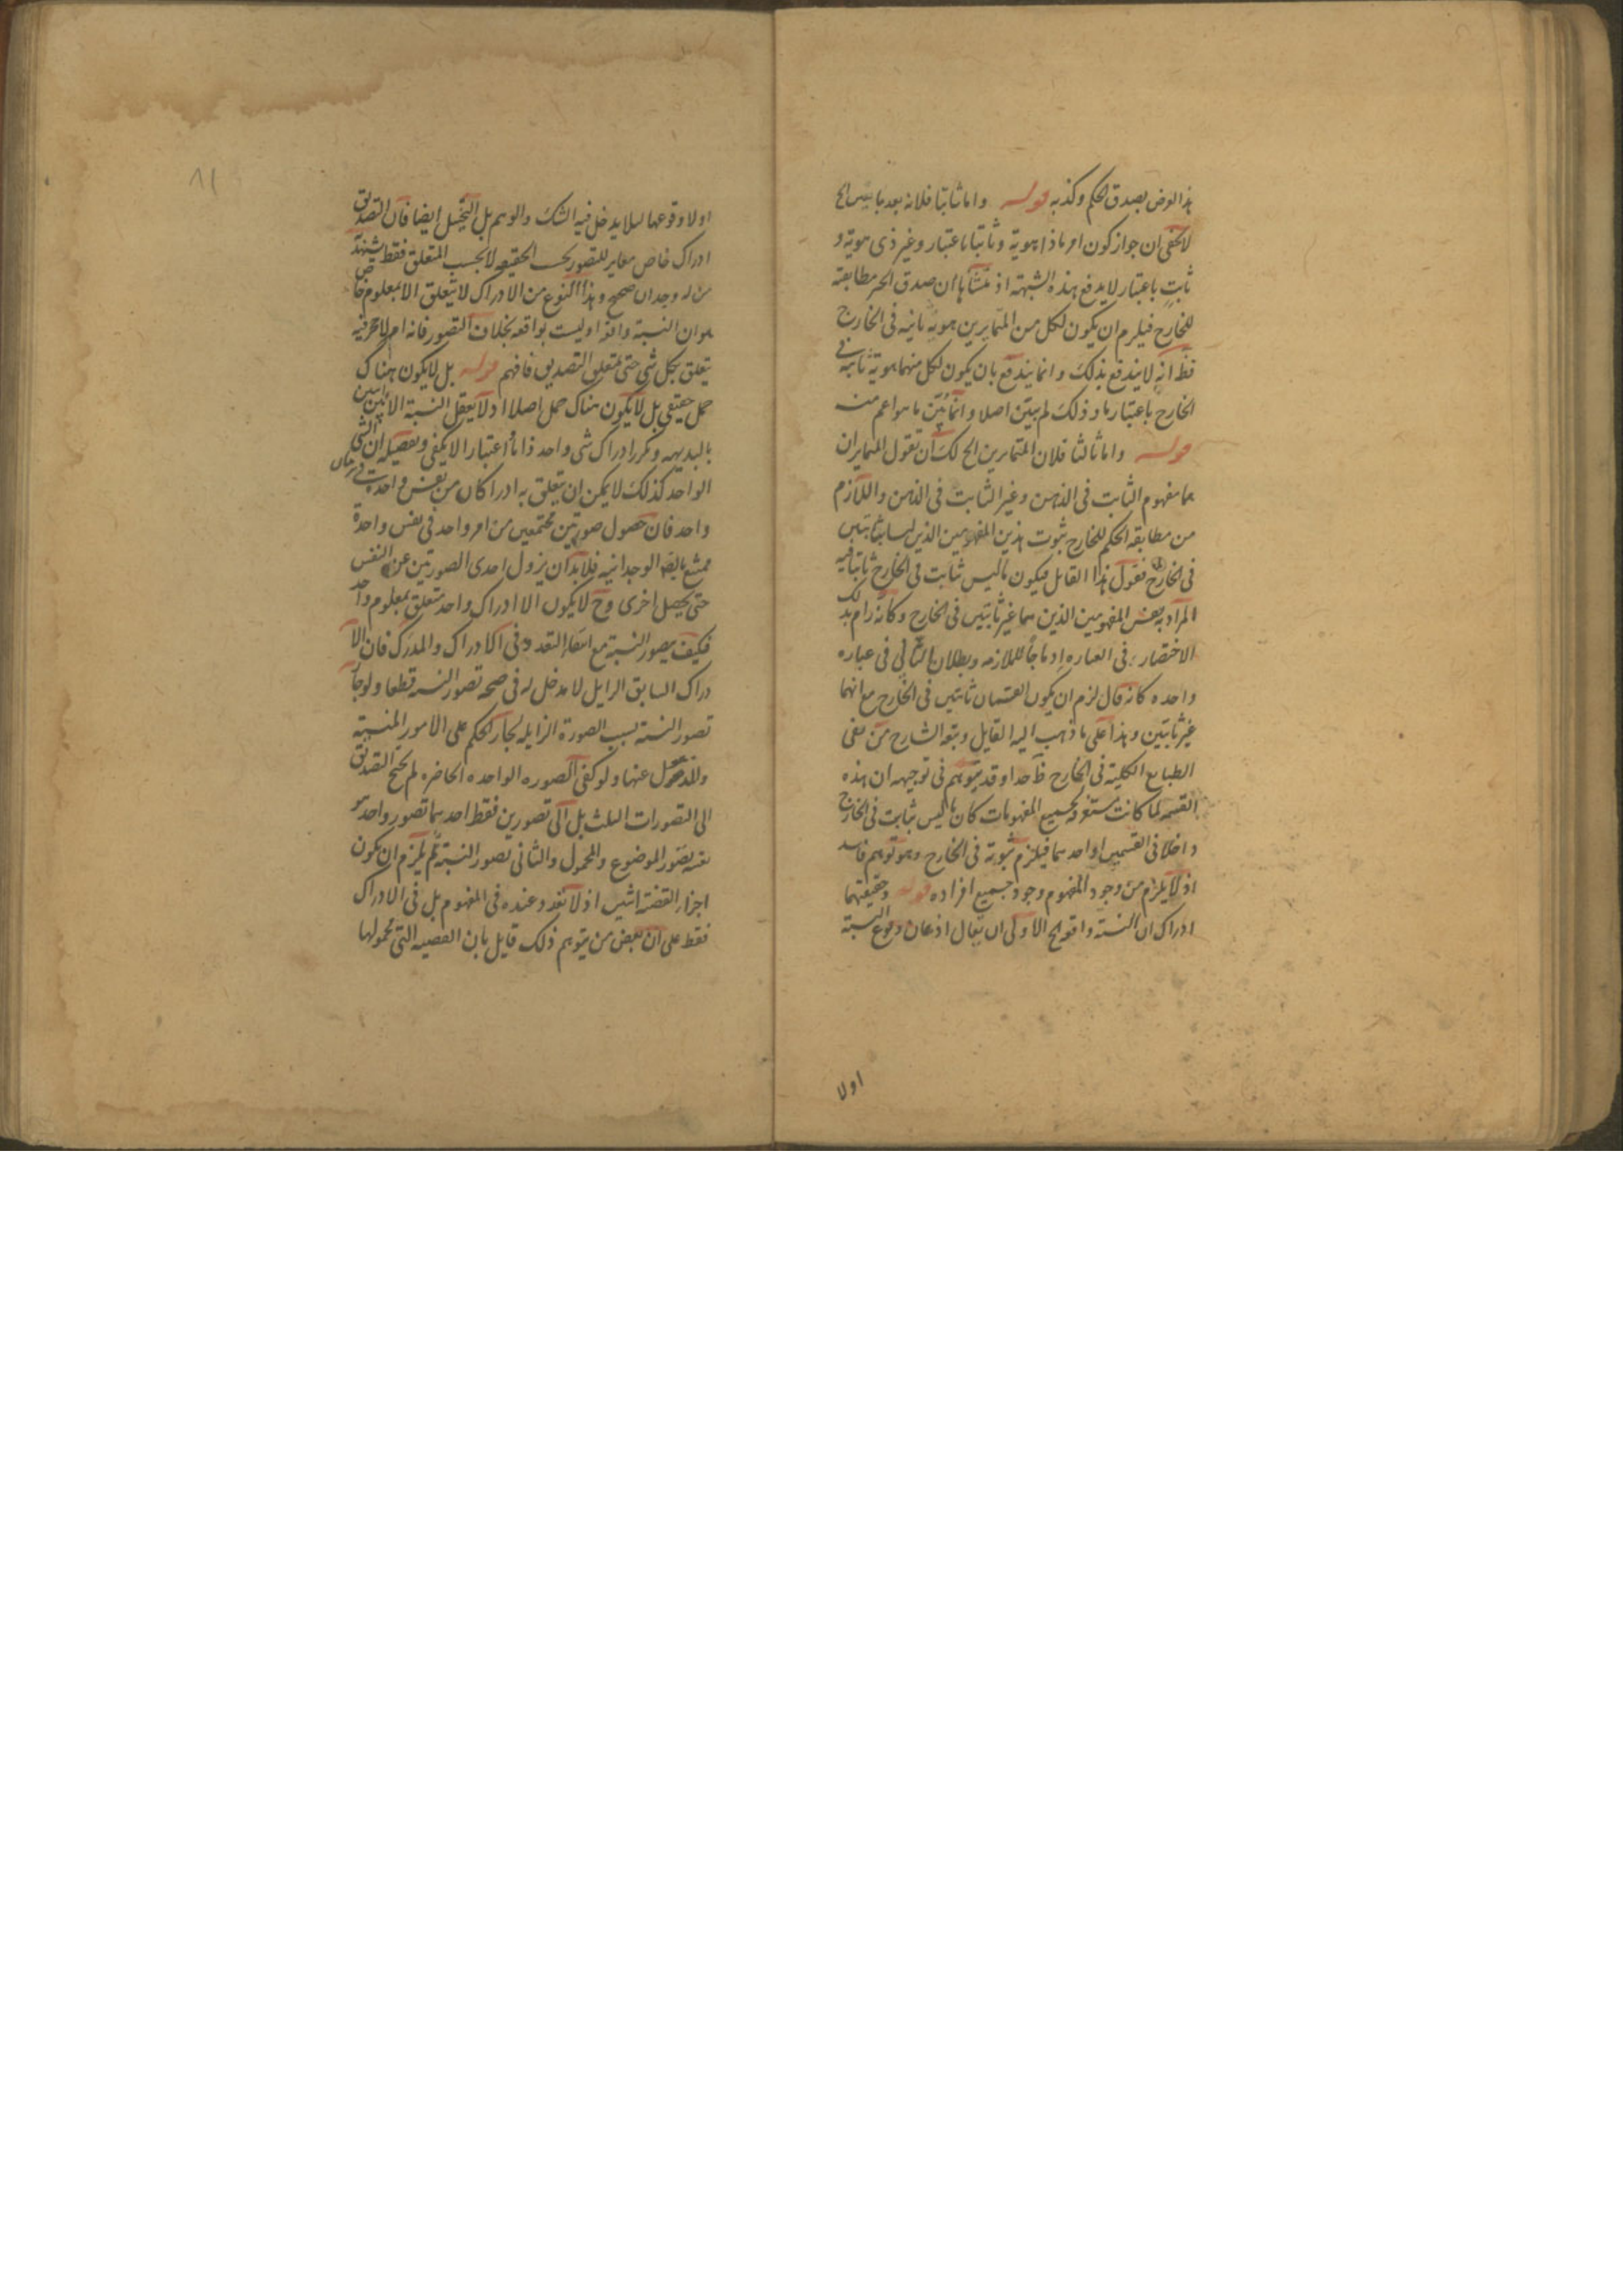 هذا الوضـ بصدق الحكم وكذبه قوله واما ثانيا فلانه بعد ما بين الخ
لا يخفى ان جواز كون امر ما ذا هوية وثابتا باعتبار وغير ذى هوية و
ثابت باعتبار لا يدفع هذه الشبهة اذ منشأها ان صدق الخبر مطابقته
للخارج فيلزم ان يكون لكل من المتمايزين هوية ثابتة فى الخارج
فظ انه لا يندفع بذلك وانما يندفع بان يكون لكل منهما هوية ثابتة فى
الخارج باعتبار ما وذلك لم يبين اصلا وانما بين ما هو اعم منه
قوله واما ثالثا فلان المتمايزين الخ لك ان تقول المتمايزان
هما مفهوم الثابت فى الذهن وغير الثابت فى الذهن واللازم
من مطابقة الحكم للخارج ثبوت هذين المفهومين الذين ليسا بثابتين
فى الخارج فقول هذا القايل فيكون ما ليس ثابت فى الخارج ثابتا فيه
المراد به بعض المفهومين الذين هما غير ثابتين فى الخارج وكانه رام بذلك
الاختصار فى العبارة ادماجا للملازمة وبطلان التالى فى عبارة
واحدة كانه قال لزم ان يكون القسمان ثابتين فى الخارج مع انهما
غير ثابتين وهذا على ما ذهب اليه القايل وتبعه الشارح من نفى
الطبايع الكلية فى الخارج ظاهر وقد يتوهم فى توجيهه ان هذه
القسمة لما كانت مستغرقة لجميع المفهومات كان ما ليس ثابت فى الخارج
داخلا فى القسمين او احدهما فيلزم ثبوته فى الخارج وهو توهم فاسد
اذ لا يلزم من وجود المفهوم وجود جميع افراده قوله وحقيقتهما
ادراك ان النسبة واقعة الخ الاولى ان يقال اذعان وقوع النسبة
اولا
اولا وقوعها لئلا يدخل فيه الشك والوهم بل التخيل ايضا فان التصديق
ادراك خاص مغاير للتصور بحسب الحقيقة لا بحسب المتعلق فقط شهد به
من له وجدان صحيح وهذا النوع من الادراك لا يتعلق الا بمعلوم خاص
هو ان النسبة واقعة او ليست بواقعة بخلاف التصور فانه امر لا حجر فيه
يتعلق بكل شى حتى بمتعلق التصديق فافهم قوله بل لا يكون هناك
حمل حقيقى بل لا يكون هناك حمل اصلا اذ لا يعقل النسبة الا بين اثنين
بالبديهة وتكرر ادراك شى واحد ذاتا واعتبارا لا يكفى وتفصيله ان الشى
الواحد كذلك لا يمكن ان يتعلق به ادراكان من نفس واحدة فى زمان
واحد فان حصول صورتين مجتمعين من امر واحد فى نفس واحدة
ممتنع بالضـ الوجدانية فلا بد ان يزول احدى الصورتين عن النفس
حتى يحصل اخرى وح لا يكون الا ادراك واحد متعلق بمعلوم واحد
فكيف يتصور النسبة مع انتفاء التعدد فى الادراك والمدرك فان الا
دراك السابق الزايل لا مدخل له فى صحة تصور النسبة قطعا ولو جاز
تصور النسبة بسبب الصورة الزايلة لجاز الحكم على الامور المنسية
والمذهول عنها ولو كفى الصورة الواحدة الحاضرة لم يحتج التصديق
الى التصورات الثلث بل الى تصورين فقط احدهما تصور واحد هو
بعينه تصور الموضوع والمحمول والثانى تصور النسبة ثم يلزم ان يكون
اجزاء القضية اثنين اذ لا تعدد عنده فى المفهوم بل فى الادراك
فقط على ان بعض من يتوهم ذلك قايل بان القضية التى محمولها